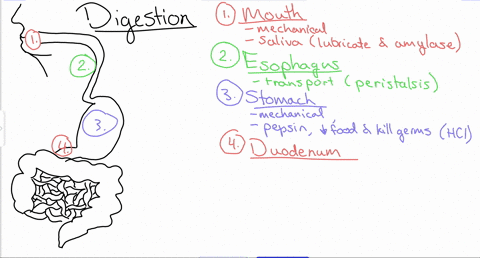 Digestion
1. Mouth
- mechanical
- saliva (lubricate & amylase)
2. Esophagus
- transport (peristalsis)
3. Stomach
- mechanical
- pepsin, ↓ food & kill germs (HCl)
4. Duodenum
1.
2.
3.
4.